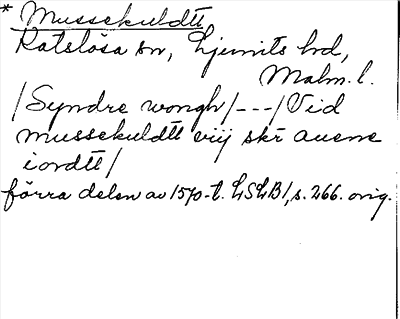 * Mussekuldtt
Katslösa sn, Ljunits hd,
Malm. l.
/Syndre wongh/---/Vid
mussekuldtt vij skr auene
iordtt/
förra delen av 1570-t. LSLB1, s. 266. orig.